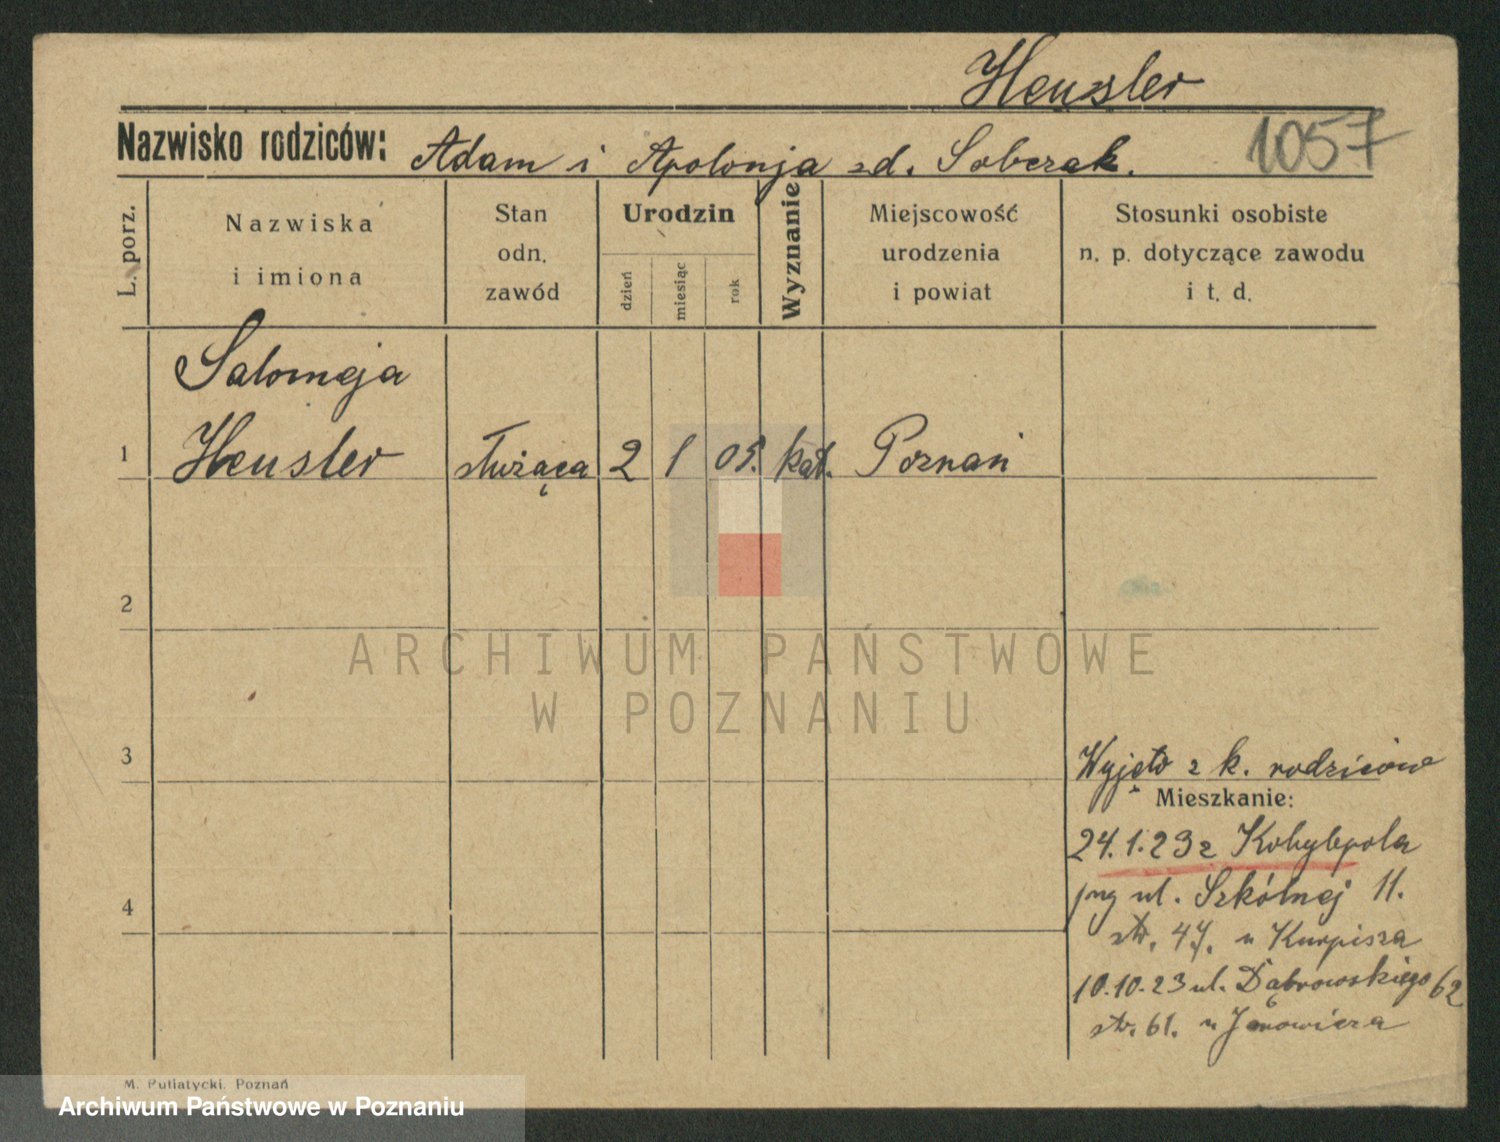 Heusler
Nazwisko rodziców: Adam i Apolonja zd. Sobczak.
1057
L. porz.
Nazwiska
i imiona
Stan
odn.
zawód
Urodzin
dzień
miesiąc
rok
Wyznanie
Miejscowość
urodzenia
i powiat
Stosunki osobiste
n. p. dotyczące zawodu
i t. d.
Salomeja
1 Heusler służąca 2 1 05. kat. Poznań
2
ARCHIWUM PAŃSTWOWE
W POZNANIU
3
Wyjęto z k. rodziców
Mieszkanie:
24.1.23 z Kobylepola
ul. Szkólnej 11.
4
str. 47. u Kurpisza
10.10.23 ul. Dąbrowskiego 62
str. 61. u
M. Putiatycki, Poznań
Archiwum Państwowe w Poznaniu